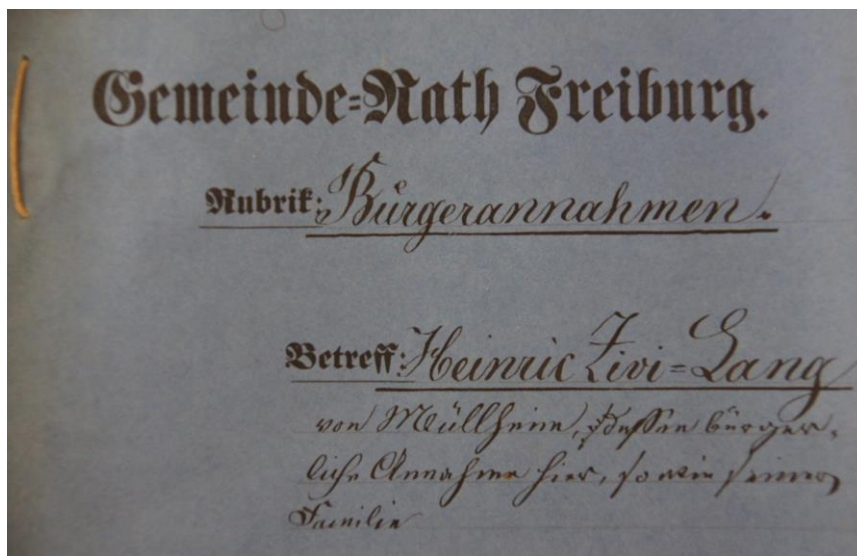 Gemeinde=Rath Freiburg.
Rubrik: Bürgerannahmen.
Betreff: Heinric Zivi=Lang
von Müllheim, dessen bürger=
liche Annahme hier, sowie seiner
Familie